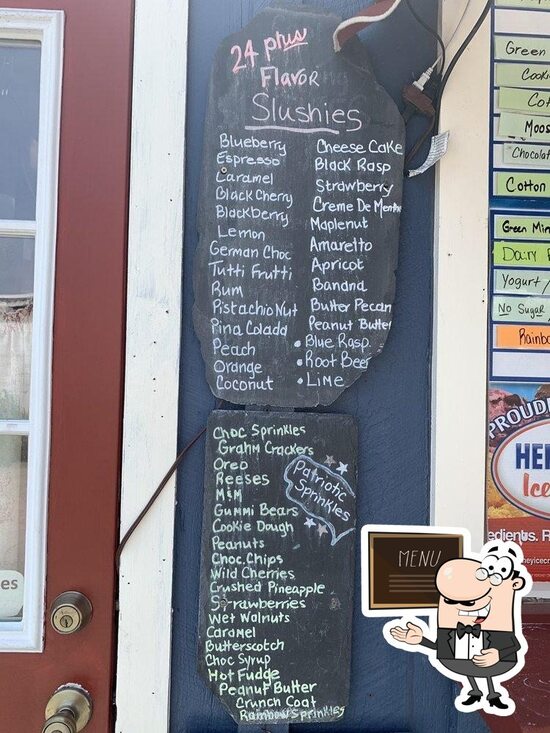 24 plus
Flavor
Slushies
Blueberry
Espresso
Caramel
Black Cherry
Blackberry
Lemon
German Choc
Tutti Frutti
Rum
Pistachio Nut
Pina Colada
Peach
Orange
Coconut
Cheese Cake
Black Rasp
Strawberry
Creme De Menthe
Maplenut
Amaretto
Apricot
Banana
Butter Pecan
Peanut Butter
• Blue Rasp.
• Root Beer
• Lime
Choc Sprinkles
Grahm Crackers
Oreo
Reeses
M&M
Gummi Bears
Cookie Dough
Peanuts
Choc. Chips
Wild Cherries
Crushed Pineapple
Strawberries
Wet Walnuts
Caramel
Butterscotch
Choc Syrup
Hot Fudge
Peanut Butter
Crunch Coat
Rainbow Sprinkles
Patriotic
Sprinkles
Green
Cook
Cot
Moos
Chocolat
Cotton
Green Min
Dairy F
Yogurt /
No Sugar
Rainbo
PROUD
HE
Ice
edients. R
MENU